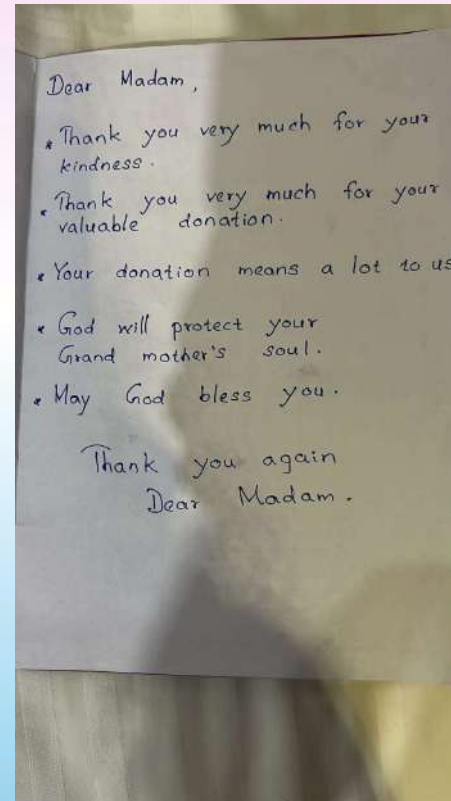 Dear Madam,
* Thank you very much for your
kindness.
* Thank you very much for your
valuable donation.
* Your donation means a lot to us
* God will protect your
Grand mother's soul.
* May God bless you.
Thank you again
Dear Madam.